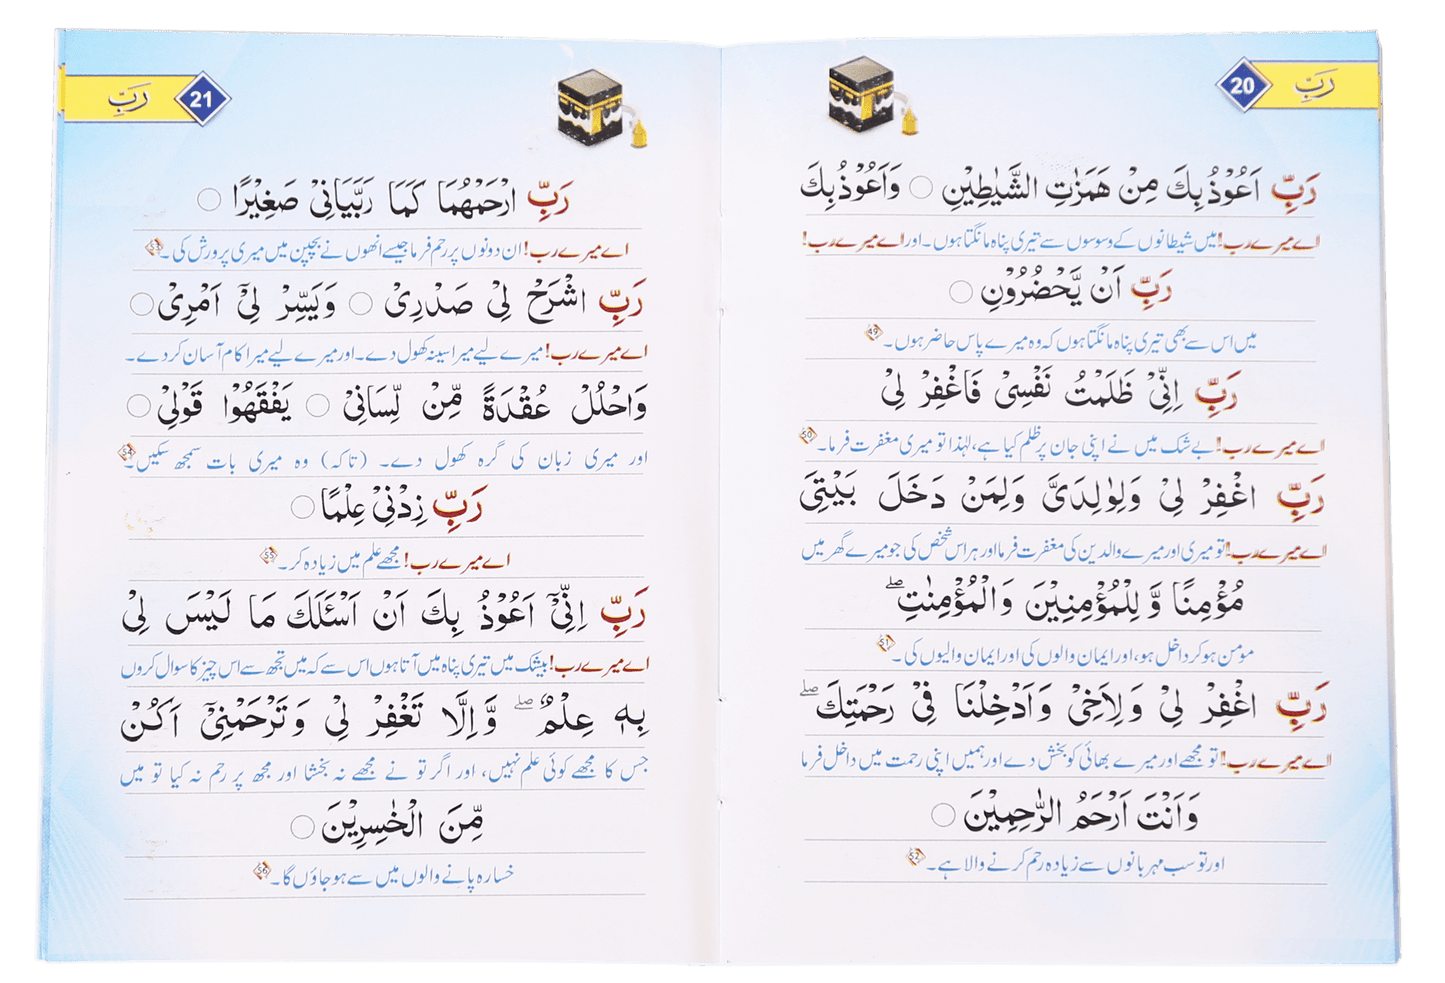 رَبِّ
20
رَبِّ اَعُوْذُ بِكَ مِنْ هَمَزٰتِ الشَّيٰطِيْنِ ○ وَاَعُوْذُ بِكَ
اے میرے رب! میں شیطانوں کے وسوسوں سے تیری پناہ مانگتا ہوں۔ اور اے میرے رب!
رَبِّ اَنْ يَّحْضُرُوْنِ ○
میں اس سے بھی تیری پناہ مانگتا ہوں کہ وہ میرے پاس حاضر ہوں۔ 49
رَبِّ اِنِّىْ ظَلَمْتُ نَفْسِىْ فَاغْفِرْ لِىْ
اے میرے رب! بے شک میں نے اپنی جان پر ظلم کیا ہے، لہٰذا تو میری مغفرت فرما۔ 50
رَبِّ اغْفِرْ لِىْ وَلِوٰلِدَىَّ وَلِمَنْ دَخَلَ بَيْتِىَ
اے میرے رب! تو میری اور میرے والدین کی مغفرت فرما اور ہر اس شخص کی جو میرے گھر میں
مُؤْمِنًا وَّ لِلْمُؤْمِنِيْنَ وَالْمُؤْمِنٰتِ ۖ
مومن ہو کر داخل ہو، اور ایمان والوں کی اور ایمان والیوں کی۔ 51
رَبِّ اغْفِرْ لِىْ وَلِاَخِىْ وَاَدْخِلْنَا فِىْ رَحْمَتِكَ ۖ
اے میرے رب! تو مجھے اور میرے بھائی کو بخش دے اور ہمیں اپنی رحمت میں داخل فرما
وَاَنْتَ اَرْحَمُ الرّٰحِمِيْنَ ○
اور تو سب مہربانوں سے زیادہ رحم کرنے والا ہے۔ 52
21
رَبِّ
رَبِّ ارْحَمْهُمَا كَمَا رَبَّيَانِىْ صَغِيْرًا ○
اے میرے رب! ان دونوں پر رحم فرما جیسے انھوں نے بچپن میں میری پرورش کی۔ 53
رَبِّ اشْرَحْ لِىْ صَدْرِىْ ○ وَيَسِّرْ لِىْٓ اَمْرِىْ ○
اے میرے رب! میرے لیے میرا سینہ کھول دے۔ اور میرے لیے میرا کام آسان کر دے۔
وَاحْلُلْ عُقْدَةً مِّنْ لِّسَانِىْ ○ يَفْقَهُوْا قَوْلِىْ ○
اور میری زبان کی گرہ کھول دے۔ (تاکہ) وہ میری بات سمجھ سکیں۔ 54
رَبِّ زِدْنِىْ عِلْمًا ○
اے میرے رب! مجھے علم میں زیادہ کر۔ 55
رَبِّ اِنِّىْٓ اَعُوْذُ بِكَ اَنْ اَسْـَٔلَكَ مَا لَيْسَ لِىْ
اے میرے رب! بیشک میں تیری پناہ میں آتا ہوں اس سے کہ میں تجھ سے اس چیز کا سوال کروں
بِهٖ عِلْمٌ ۖ وَّاِلَّا تَغْفِرْ لِىْ وَتَرْحَمْنِىْٓ اَكُنْ
جس کا مجھے کوئی علم نہیں، اور اگر تو نے مجھے نہ بخشا اور مجھ پر رحم نہ کیا تو میں
مِّنَ الْخٰسِرِيْنَ ○
خسارہ پانے والوں میں سے ہو جاؤں گا۔ 56